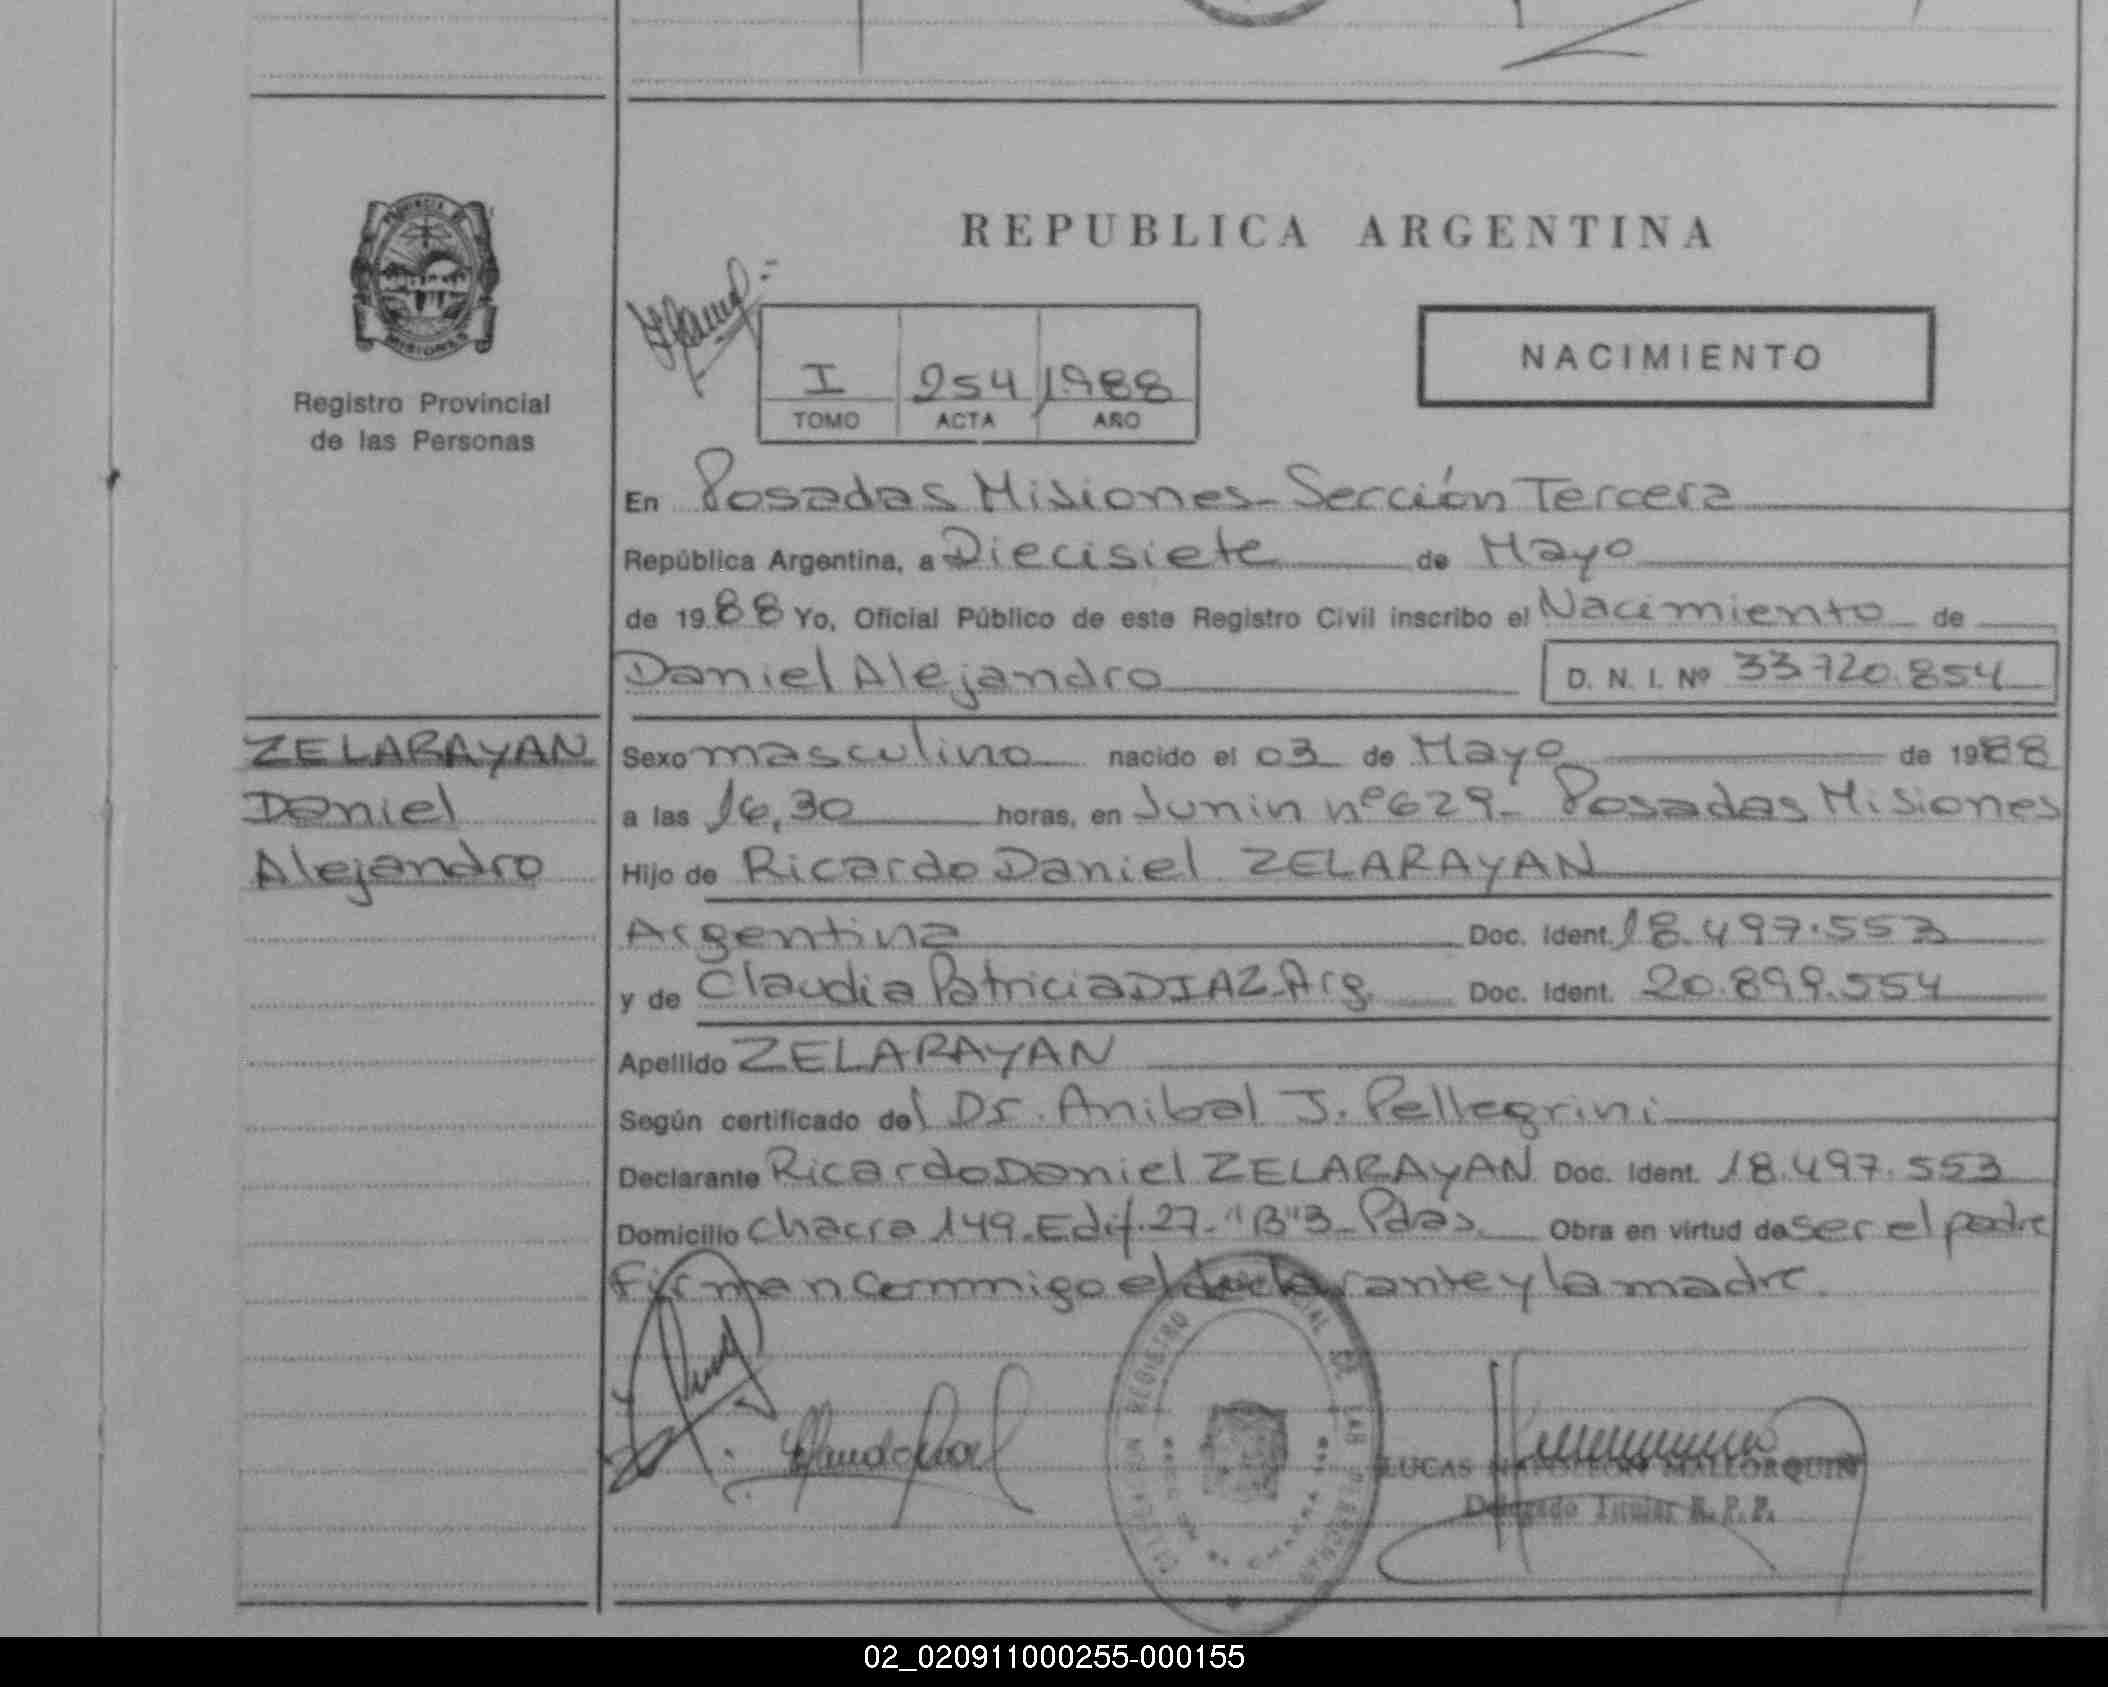 PROVINCIA DE
MISIONES
Registro Provincial
de las Personas
REPUBLICA ARGENTINA
I 254 1988
TOMO ACTA AÑO
NACIMIENTO
En Posadas Misiones - Sección Tercera
República Argentina, a Diecisiete de Mayo
de 1988 Yo, Oficial Público de este Registro Civil inscribo el Nacimiento de
Daniel Alejandro D. N. I. Nº 33.720.854
ZELARAYAN
Daniel
Alejandro
Sexo masculino nacido el 03 de Mayo de 1988
a las 16,30 horas, en Junin nº 629 - Posadas Misiones
Hijo de Ricardo Daniel ZELARAYAN
Argentina Doc. Ident. 18.497.553
y de Claudia Patricia DIAZ-Arg. Doc. Ident. 20.899.554
Apellido ZELARAYAN
Según certificado del Dr. Anibal J. Pellegrini
Declarante Ricardo Daniel ZELARAYAN Doc. Ident. 18.497.553
Domicilio chacra 149-Edif.27-"B"3-Pdas. Obra en virtud de ser el padre
Firman conmigo el declarante y la madre.
REGISTRO DE LAS PERSONAS
LUCAS NAPOLEON MALLORQUIN
Delegado Titular R. P. P.
02_020911000255-000155